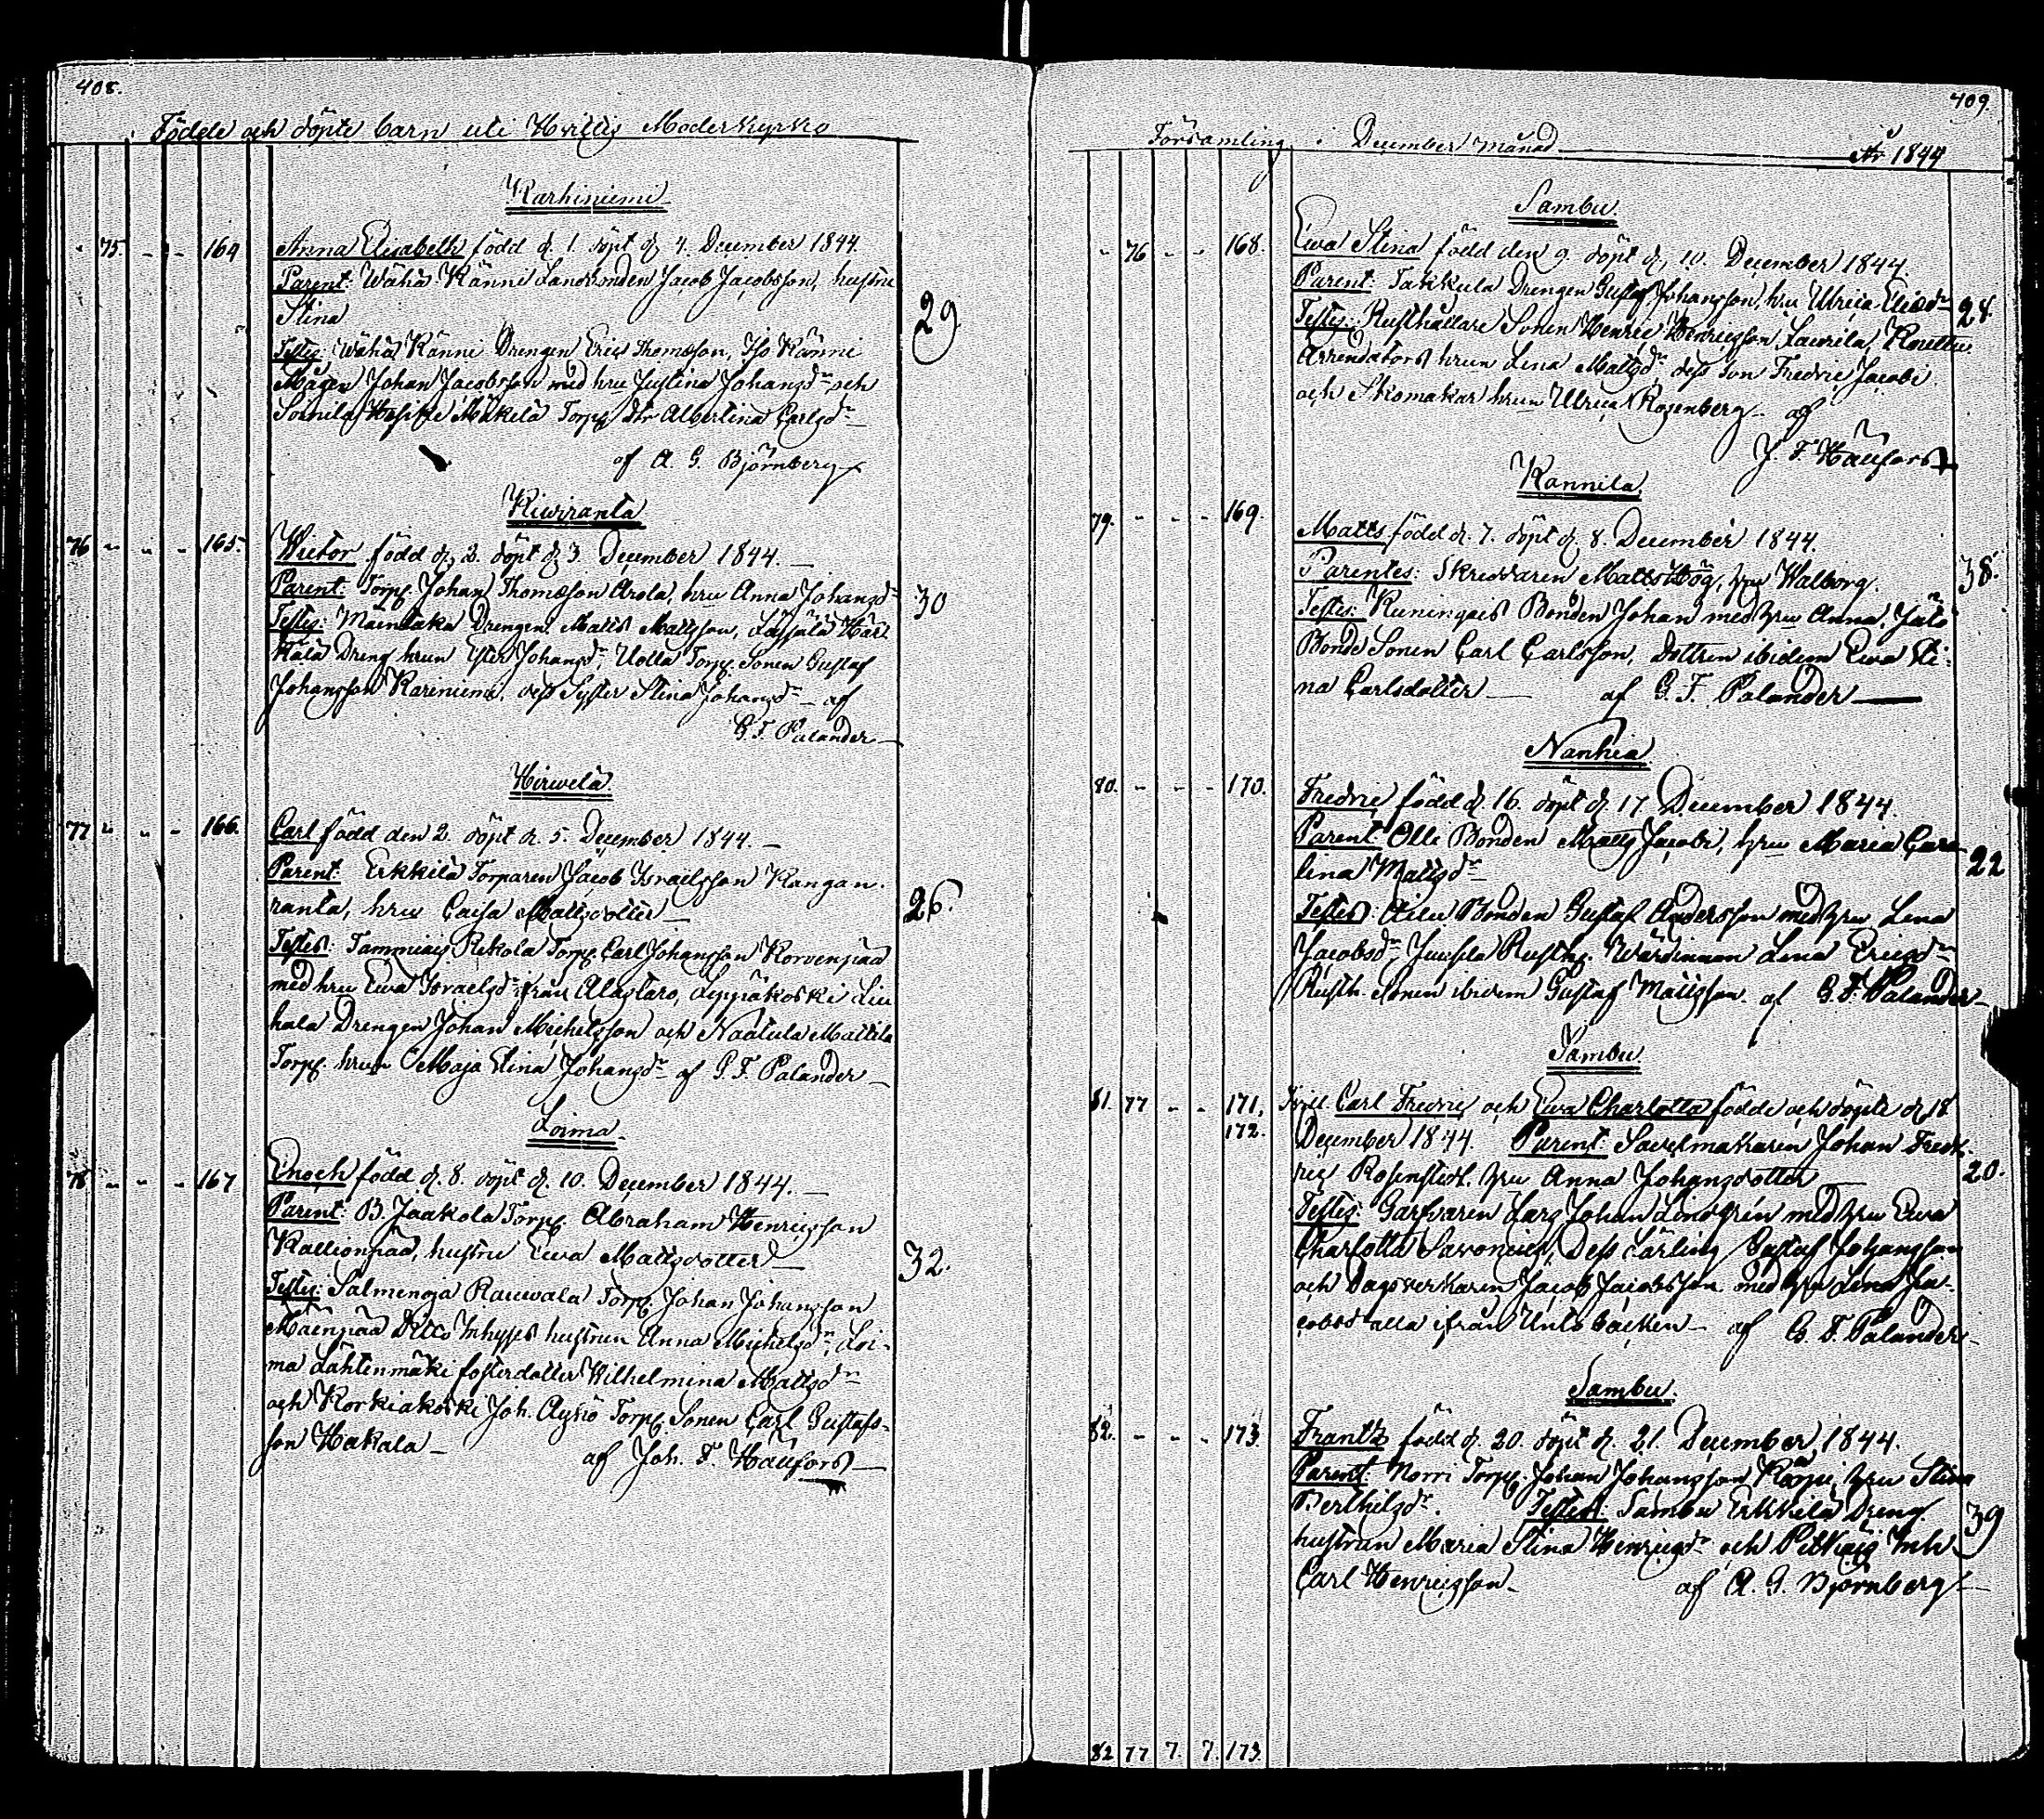 408.
Födde och döpte barn uti Hvittis Moderkyrko
Karhiniemi
75. - - 164 Anna Elisabeth född d. 1. döpt d. 4. December 1844.
Parent: Wähä Känni Landbonden Jacob Jacobsson, hustru
Stina
29
Testes: Wähä Känni Drengen Eric Thomasson, Iso Känni
Mågen Johan Jacobsson med hru Justina Johansdr och
Mäkelä Torp. dtr Albertina Carlsdr
af A. G. Björnberg
Kiviranta
76 - - - 165. Victor född d. 2. döpt d. 3. December 1844.
Parent: Torp. Johan Thomasson Arola, hru Anna Johansdr
30
Testes: Drengen Matts Mattsson,
Dreng hrun Ester Johansdr, Uolla Torp. Sonen Gustaf
Johansson Kariniemi, dess Syster Stina Johansdr - af
G. F. Palander
Hirvelä
77 - - - 166. Carl född den 2. döpt d. 5. December 1844.
Parent: Erkkilä Torparen Jacob Israelsson Kangan-
ranta, hru Caisa Mattsdotter
26.
Testes: Tammiais Rekola Torp. Carl Johansson Korvenpää
med hru Ewa Israelsdr från Alastaro, Leppäkoski Liu
hala Drengen Johan Michelsson och Naatula Mattila
Torp. hrun Maja Stina Johansdr af G. F. Palander
Loima
78 - - - 167 Enoch född d. 8. döpt d. 10. December 1844.
Parent: B. Jaakola Torp. Abraham Henricsson
Kallionpää, hustru Ewa Mattsdotter
32.
Testes: Salmenoja Rauvala Torp. Johan Johansson
Mäenpää Ditto Inhyses hustrun Anna Michelsdr, Loi-
ma Lähtenmäki fosterdotter Wilhelmina Mattsdr
och Korkiakoski Joh. Torp. Sonen Carl Gustafs-
son Hakala
af Joh. F. Hällfors
409.
Församling i December Månad År 1844
Sambu.
- 76 - - 168. Ewa Stina född den 9. döpt d. 10. December 1844.
Parent: Takkula Drengen Gustaf Johansson, hru Ulrica
28.
Testes: Rusthållare Sonen Henric Henricsson Laurila,
Arrendators hrun Lena Mattsdr dess son Fredric Jacobs.
och Skomakar hrun Ulrica Rosenberg - af
J. F. Hällfors
Kannila
79. - - - 169. Matts född d. 7. döpt d. 8. December 1844.
Parentes: Skreddaren Matts Hög, hru Walborg.
38.
Testes: Kuningais Bonden Johan med hru Anna,
Bonde Sonen Carl Carlsson, Dottren ibidem Ewa Sti-
na Carlsdotter af G. F. Palander
Nanhia
80. - - - 170. Fredric född d. 16. döpt d. 17. December 1844.
Parent: Olli Bonden Matts Jacobs., hru Maria Caro-
lina Mattsdr
22
Testes: Bonden Gustaf Andersson med hru Lena
Jacobsdr, Rusth. Wärdinnan Lena Ericsdr
Rusth. Sonen ibidem Gustaf Mattsson. af G. F. Palander
Sambu.
81. 77 - - 171. Tvill. Carl Fredric och Ewa Charlotta födde och döpte d. 18
172. December 1844. Parent: Sadelmakaren Johan Fred-
ric Rosenstedt. hru Anna Johansdotter
20.
Testes: Garfvaren Johan Lindgrén med hru Ewa
Charlotta Savonius, Dess Lärling Gustaf Johansson
och Dagsverkaren Jacob Jacobsson med hru Lena Ja-
cobsd alla ifrån backen - af G. F. Palander
Sambu.
82. - - - 173. Frantz född d. 20. döpt d. 21. December 1844.
Parent: Norri Torp. Johan Johansson Karpi, hru Stina
Berthilsdr. Testes: Sambu Erkkilä Dreng
39
hustrun Maria Stina Henricsdr och Inh.
Carl Henricsson af A. G. Björnberg
82 77 7. 7. 173.